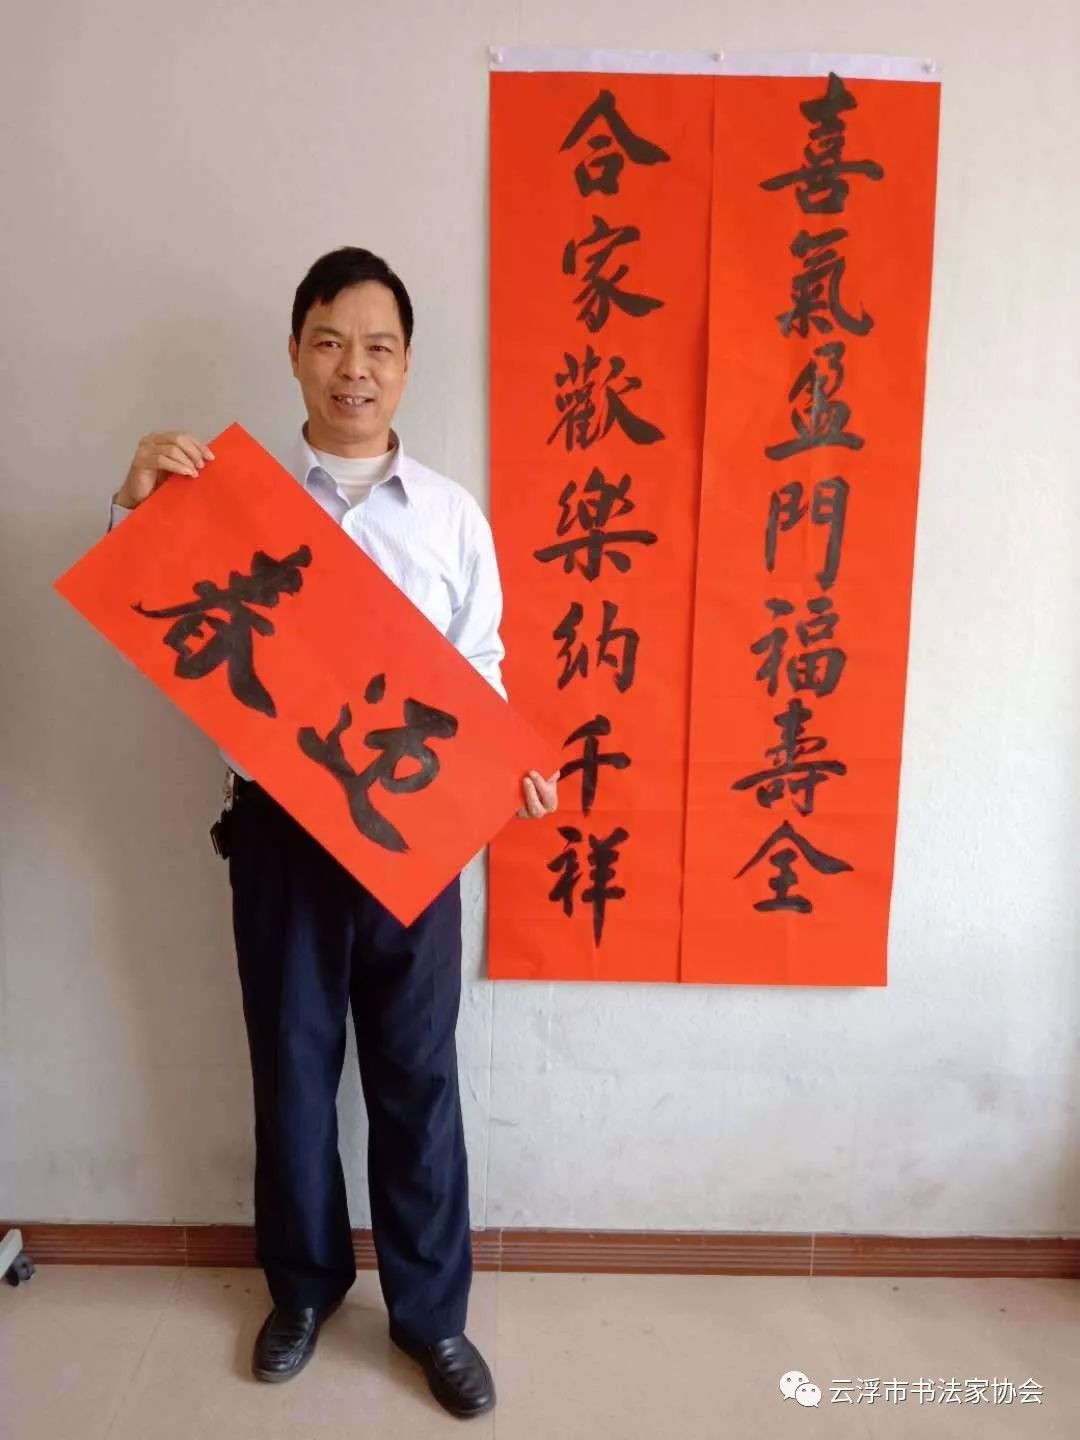 喜氣盈門福壽全
合家歡樂納千祥
云浮市书法家协会